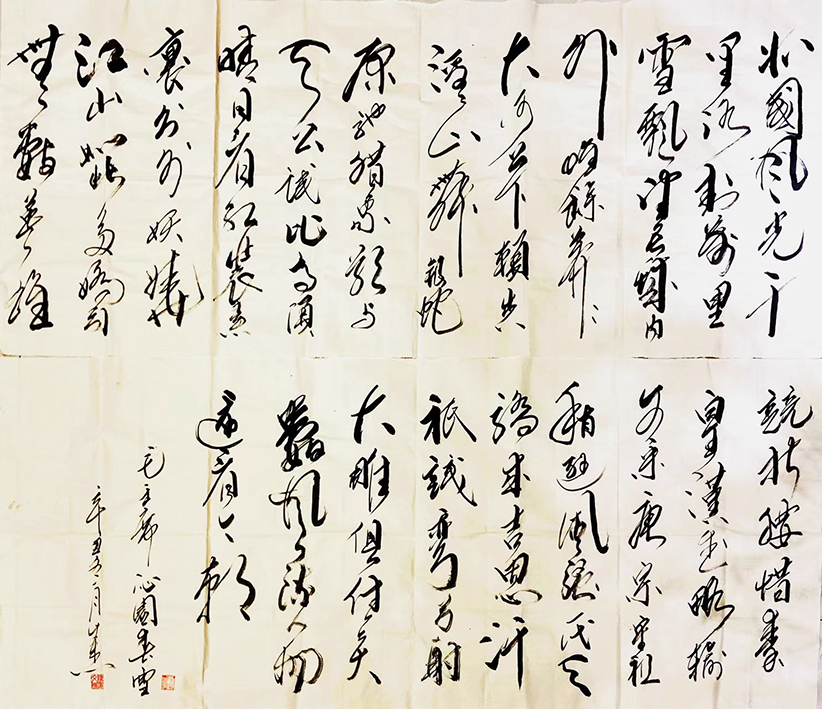 北國風光千
里冰封萬里
雪飄望長城内
外惟餘莽〻
大河上下頓失
滔〻山舞銀蛇
原馳蜡象欲与
天公試比高須
晴日看红裝素
裹分外妖嬈
江山如此多嬌引
無數英雄
競折腰惜秦
皇漢武略輸
文采唐宗宋祖
稍遜風骚一代天
驕成吉思汗
祇識彎弓射
大雕俱往矣
數風流人物
還看今朝
毛主席沁園春雪
辛丑月